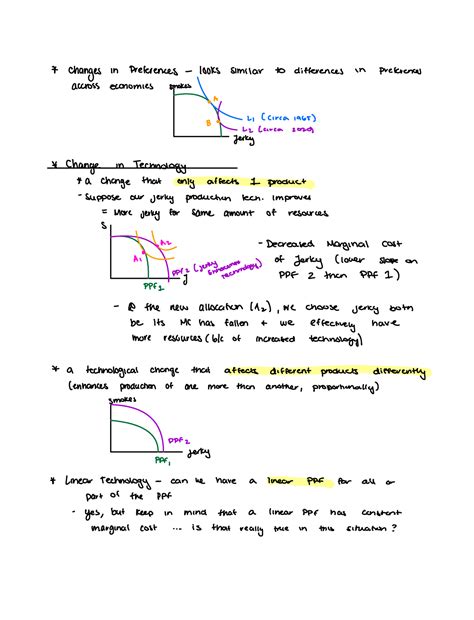 * Changes in Preferences – looks similar to differences in preferences
across economies
smokes
A
B
L1 (circa 1965)
L2 (circa 2020)
jerky
* Change in Technology
* a change that only affects 1 product
- Suppose our jerky production tech. improves
= More jerky for same amount of resources
S
A2
A1
PPF2 (jerky enhancement technology)
PPF1
J
- Decreased Marginal cost
of jerky (lower slope on
PPF 2 than PPF 1)
- @ the new allocation (A2), we choose jerky both
be its MC has fallen + we effectively have
more resources (b/c of increased technology)
* a technological change that affects different products differently
(enhances production of one more than another, proportionally)
smokes
PPF2
PPF1
jerky
* Linear Technology – can we have a linear PPF for all or
part of the PPF
- yes, but keep in mind that a linear PPF has constant
marginal cost ... is that really true in this situation?